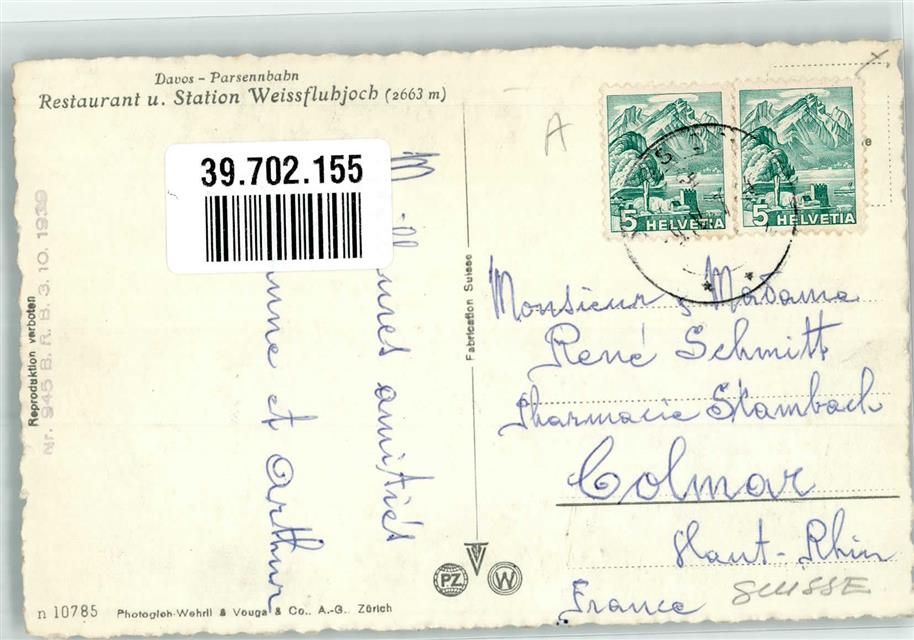 Davos - Parsennbahn
Restaurant u. Station Weissfluhjoch (2663 m)
39.702.155
A
5 HELVETIA
5 HELVETIA
amitiés
et Arthur
Fabrication Suisse
Reproduktion verboten
Nr. 945 B. R. B. 3. 10. 1939
Monsieur & Madame
René Schmitt
Pharmacie Stambach
Colmar
Haut-Rhin
France
SUISSE
PZ
W
n 10785 Photogloh-Wehrli & Vouga & Co., A.-G. Zürich